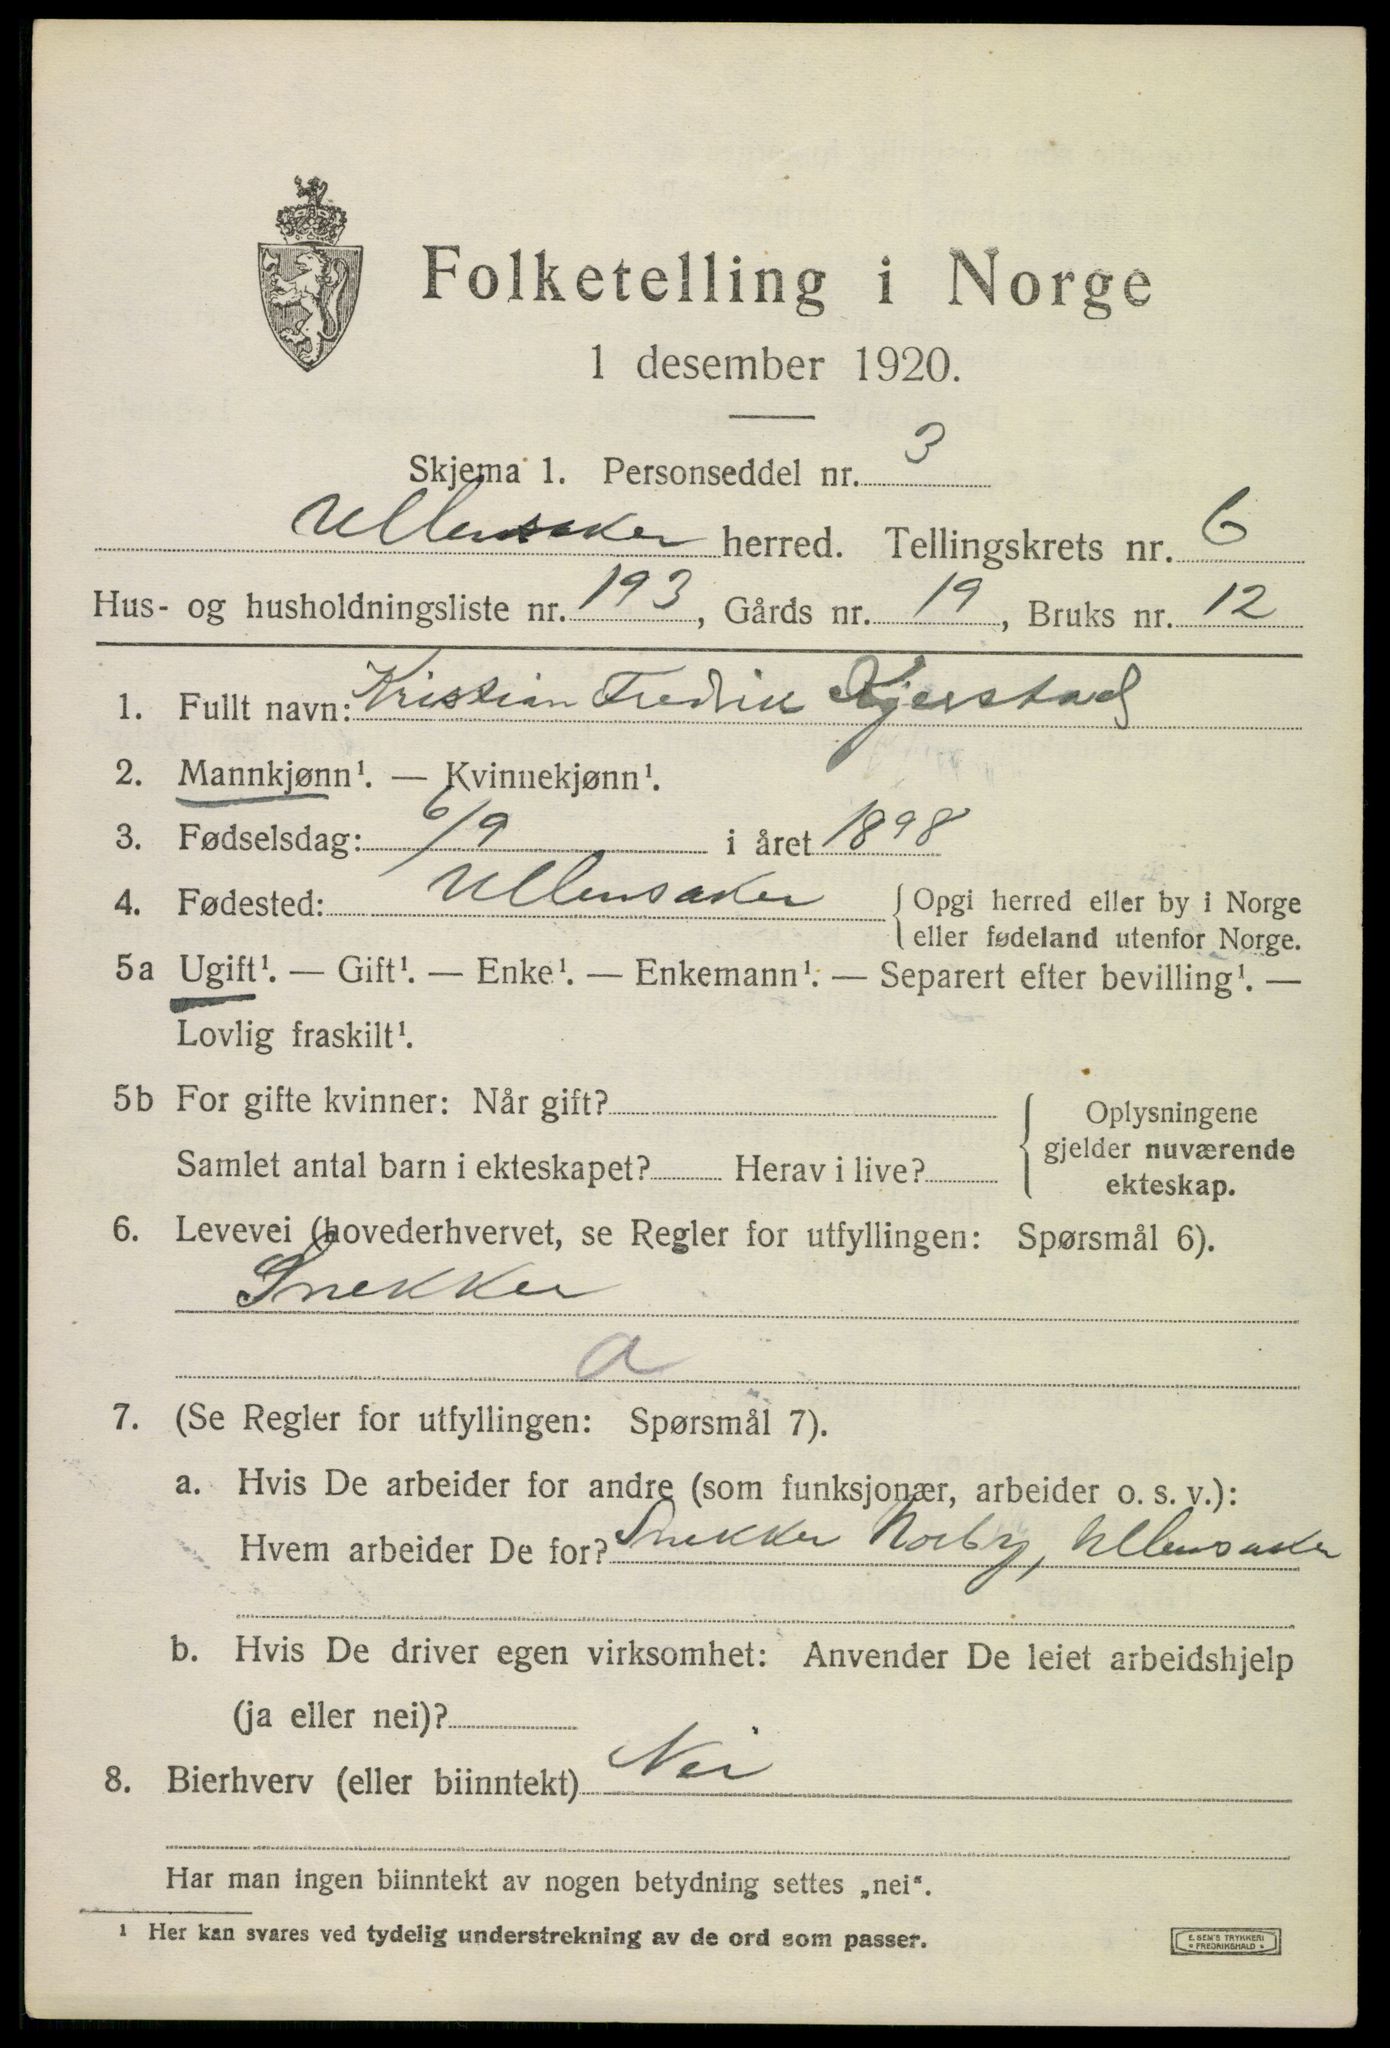 Folketelling i Norge
1 desember 1920.
Skjema 1. Personseddel nr. 3
Ullensaker herred. Tellingskrets nr. 6
Hus- og husholdningsliste nr. 193, Gårds nr. 19, Bruks nr. 12
1. Fullt navn: Kristian Fredrik Kjerstad
2. Mannkjønn¹. — Kvinnekjønn¹.
3. Fødselsdag: 6/9 i året 1898
4. Fødested: Ullensaker { Opgi herred eller by i Norge
eller fødeland utenfor Norge.
5a Ugift¹. — Gift¹. — Enke¹. — Enkemann¹. — Separert efter bevilling¹. —
Lovlig fraskilt¹.
5b For gifte kvinner: Når gift? { Oplysningene
gjelder nuværende
Samlet antal barn i ekteskapet? Herav i live? ekteskap.
6. Levevei (hovederhvervet, se Regler for utfyllingen: Spørsmål 6).
Snekker
a
7. (Se Regler for utfyllingen: Spørsmål 7).
a. Hvis De arbeider for andre (som funksjonær, arbeider o. s. v.):
Hvem arbeider De for? Snekker Norby, Ullensaker
b. Hvis De driver egen virksomhet: Anvender De leiet arbeidshjelp
(ja eller nei)?
8. Bierhverv (eller biinntekt) Nei
Har man ingen biinntekt av nogen betydning settes „nei“.
¹ Her kan svares ved tydelig understrekning av de ord som passer.
E. SEM'S TRYKKERI
* FREDRIKSHALD *